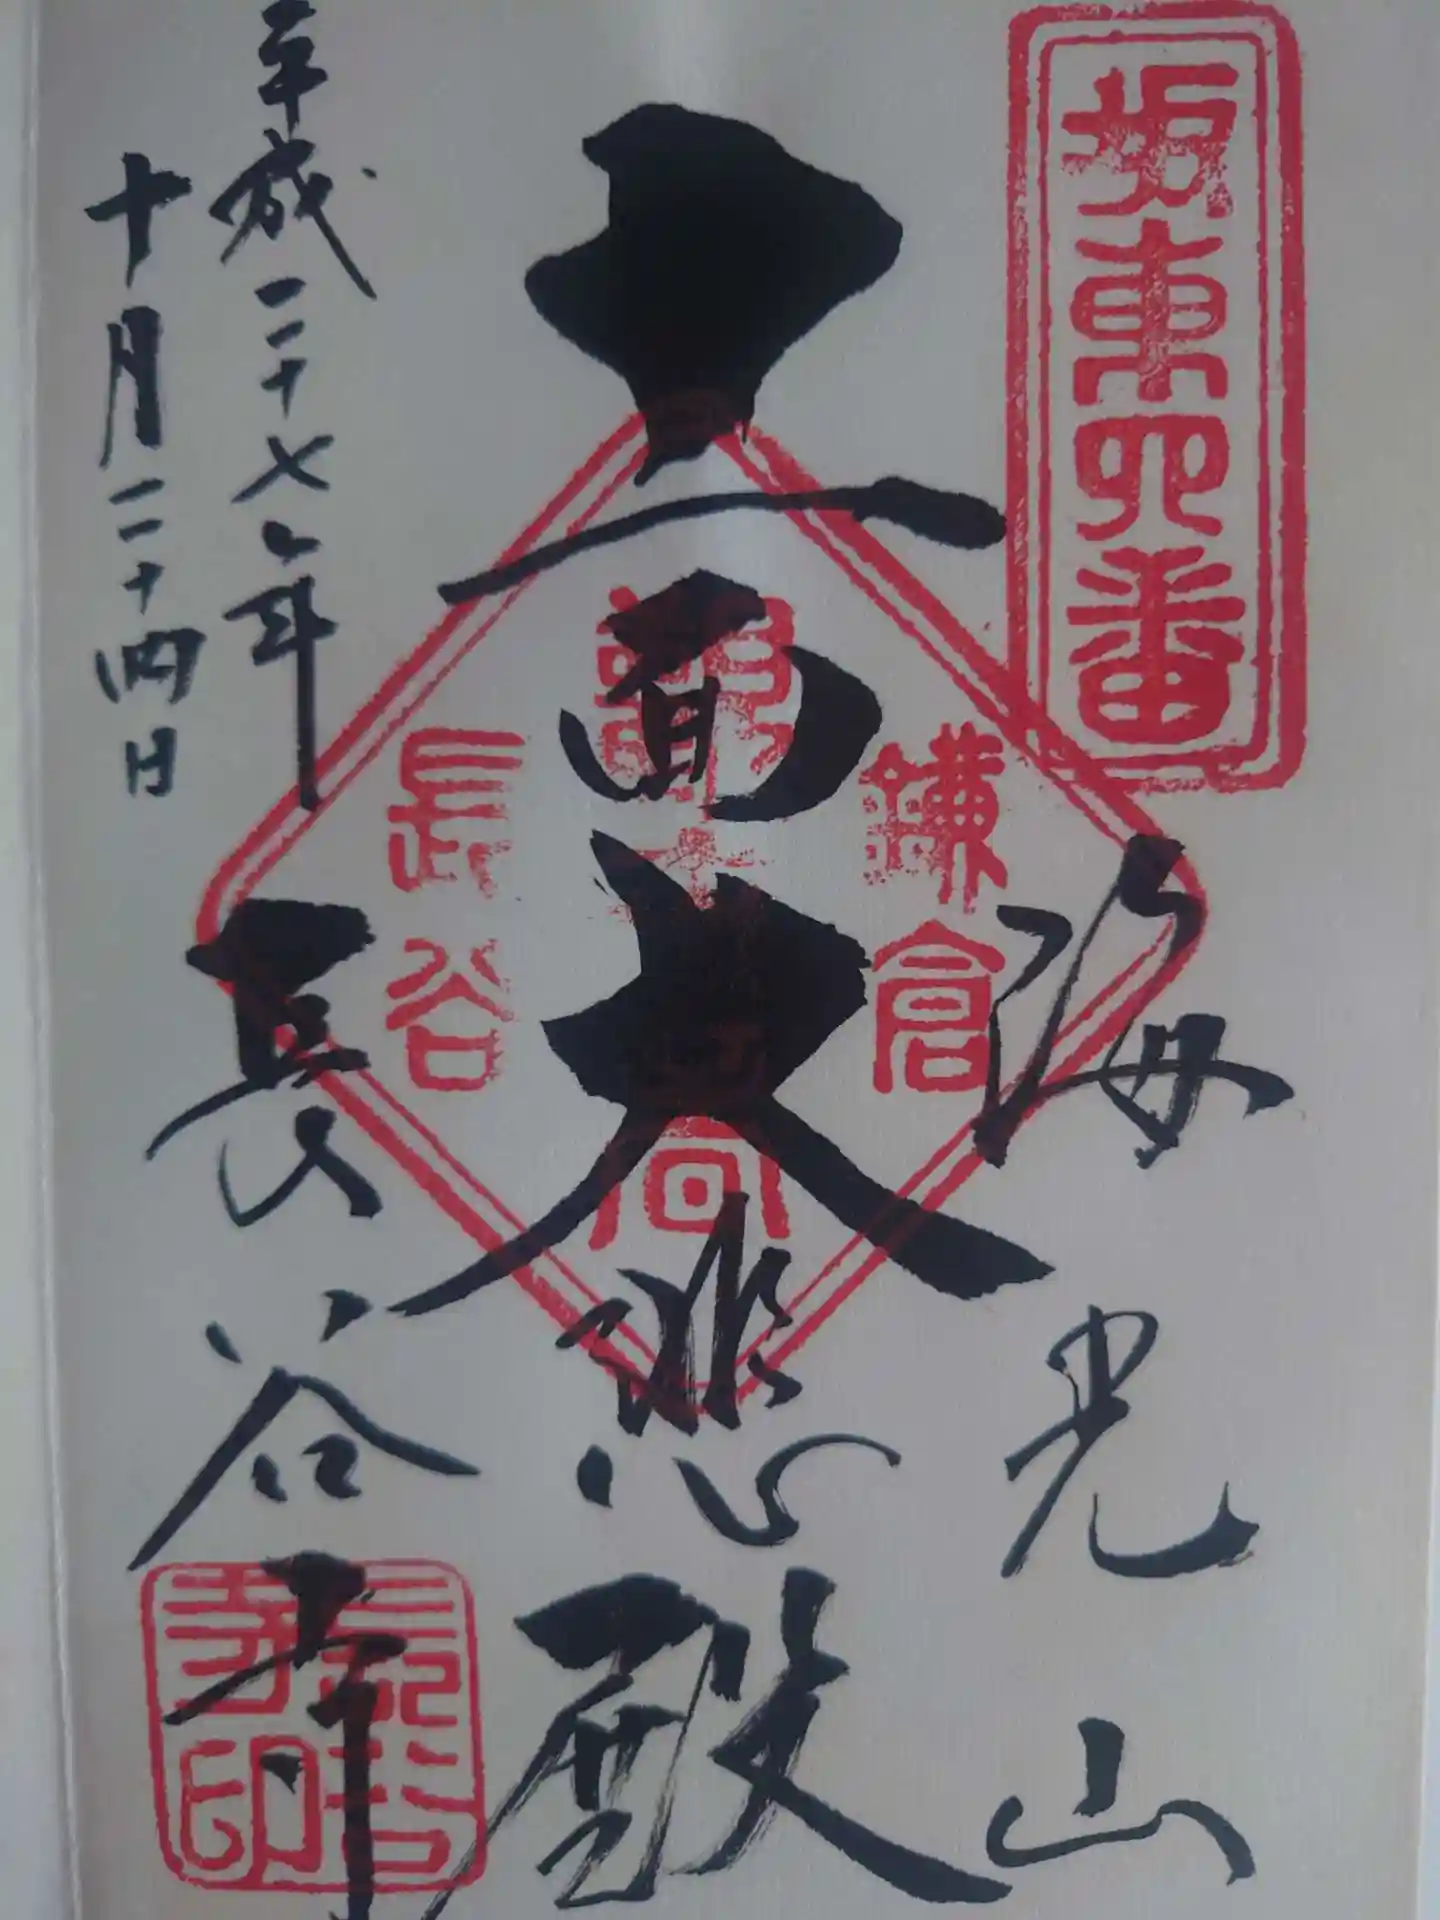 坂東四番
海光山
十一面大悲殿
鎌倉
長谷
長谷寺
長谷寺印
平成二十七年
十月二十四日